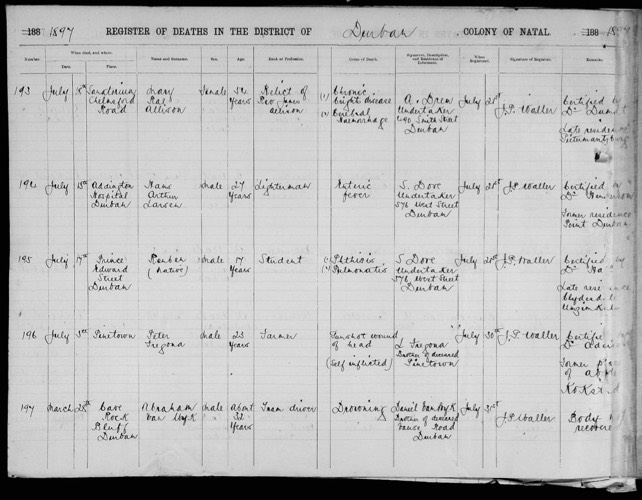 188 1897 REGISTER OF DEATHS IN THE DISTRICT OF Durban COLONY OF NATAL. 188 1897
When died, and where.
Number. Date. Place. Name and Surname. Sex. Age. Rank or Profession. Cause of Death. Signature, Description, and Residence of Informant. When Registered. Signature of Registrar. Remarks.
193 July Chelmsford Road
Mary
Allison
Female
Years
Relict of
Rev James
Allison
(1) Chronic
Bright disease
(2) Cerebral
Haemorrhage
A. Dren
Undertaker
Smith Street
Durban
July
J.P. Waller
Certified by
Dr
Late residence
194 July 18th Addington
Hospital
Durban
Hans
Arthur
Larsen
Male
27
Years
Lighterman
Enteric
fever
S. Dove
Undertaker
376 West Street
Durban
July 20th
J.P. Waller
Certified by
Dr
Former residence
Point Durban
195 July 17th Prince
Edward
Street
Durban
Reuben
(Native)
Male
17
Years
Student
(1) Phthisis
(2) Pulmonalis
S. Dove
Undertaker
376 West Street
Durban
July
J.P. Waller
Certified by
Dr
Late residence
196 July Pinetown
Peter
Tregona
Male
23
Years
Farmer
Gunshot wound
of head
(Self inflicted)
Tregona
Brother of deceased
Pinetown
July 30th
J.P. Waller
Certified
Dr
Former place
of
Kokstad
197 March 28th Cave
Rock
Bluff
Durban
Abraham
van Wyk
Male
About
32
Years
Tram driver
Drowning
Daniel van Wyk
Brother of deceased
Road
Durban
July 31st
J.P. Waller
Body
recovered